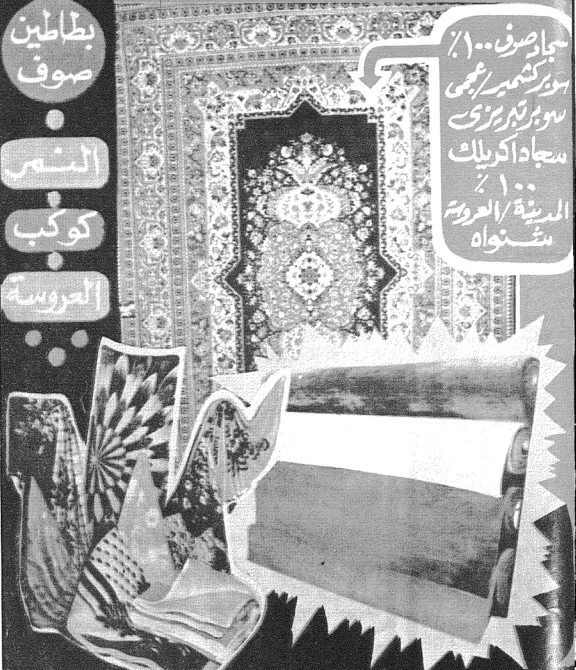 بطاطين
صوف
النمر
كوكب
العروسة
سجاد صوف ١٠٠٪
سوبر كشمير/عجمى
سوبر تبريزى
سجاد اكريلك
١٠٠٪
المدينة/العروسة
شنواه